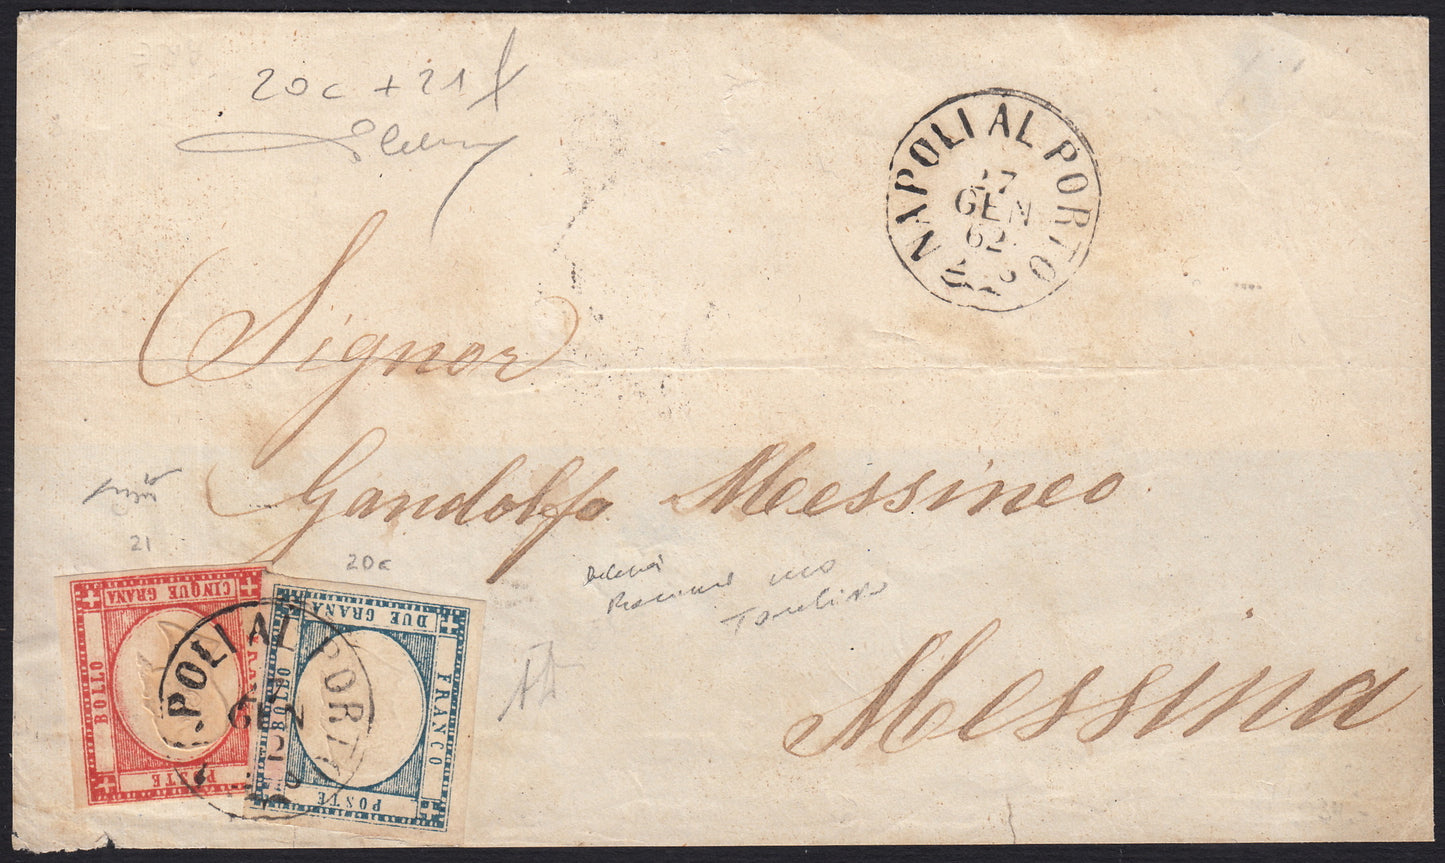 20c + 21
NAPOLI AL PORTO
27
GEN
62
Signor
Gandolfo Messineo
21
20c
Messina
CINQUE GRANA
BOLLO
POSTE
DUE GRANA
FRANCO
BOLLO
POSTE
POLI AL PORT
GEN